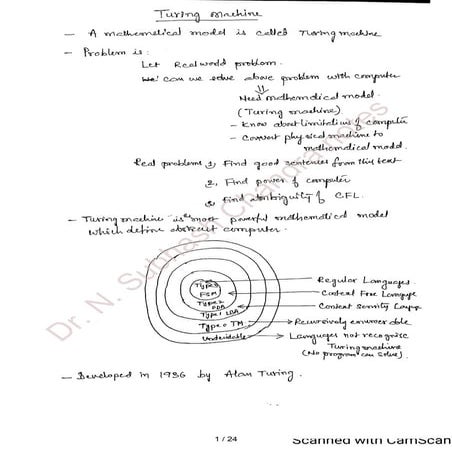 Turing Machine
- A mathematical model is called Turing machine
- Problem is:
Let Real world problem.
We can we solve above problem with computer
⇓
Need Mathematical model
(Turing machine)
- Know about limitations of computer
- Convert physical machine to
mathematical model.
Real problems 1, Find good sentences from this text
2, Find power of computer
3, Find ambiguity of CFL.
- Turing machine is most powerful mathematical model
which define abstract computer.
Type 3
FSM
Type 2
PDA
Type 1 LBA
Type 0 TM
Undecidable
Regular Languages
Context Free Language
Context Sensitivity Language
Recursively enumerable
Languages not recognise
Turing machine
(No program can solve)
- Developed in 1936 by Alan Turing.
Dr. N. Subhash Chandra notes
1 / 24
Scanned with CamScan